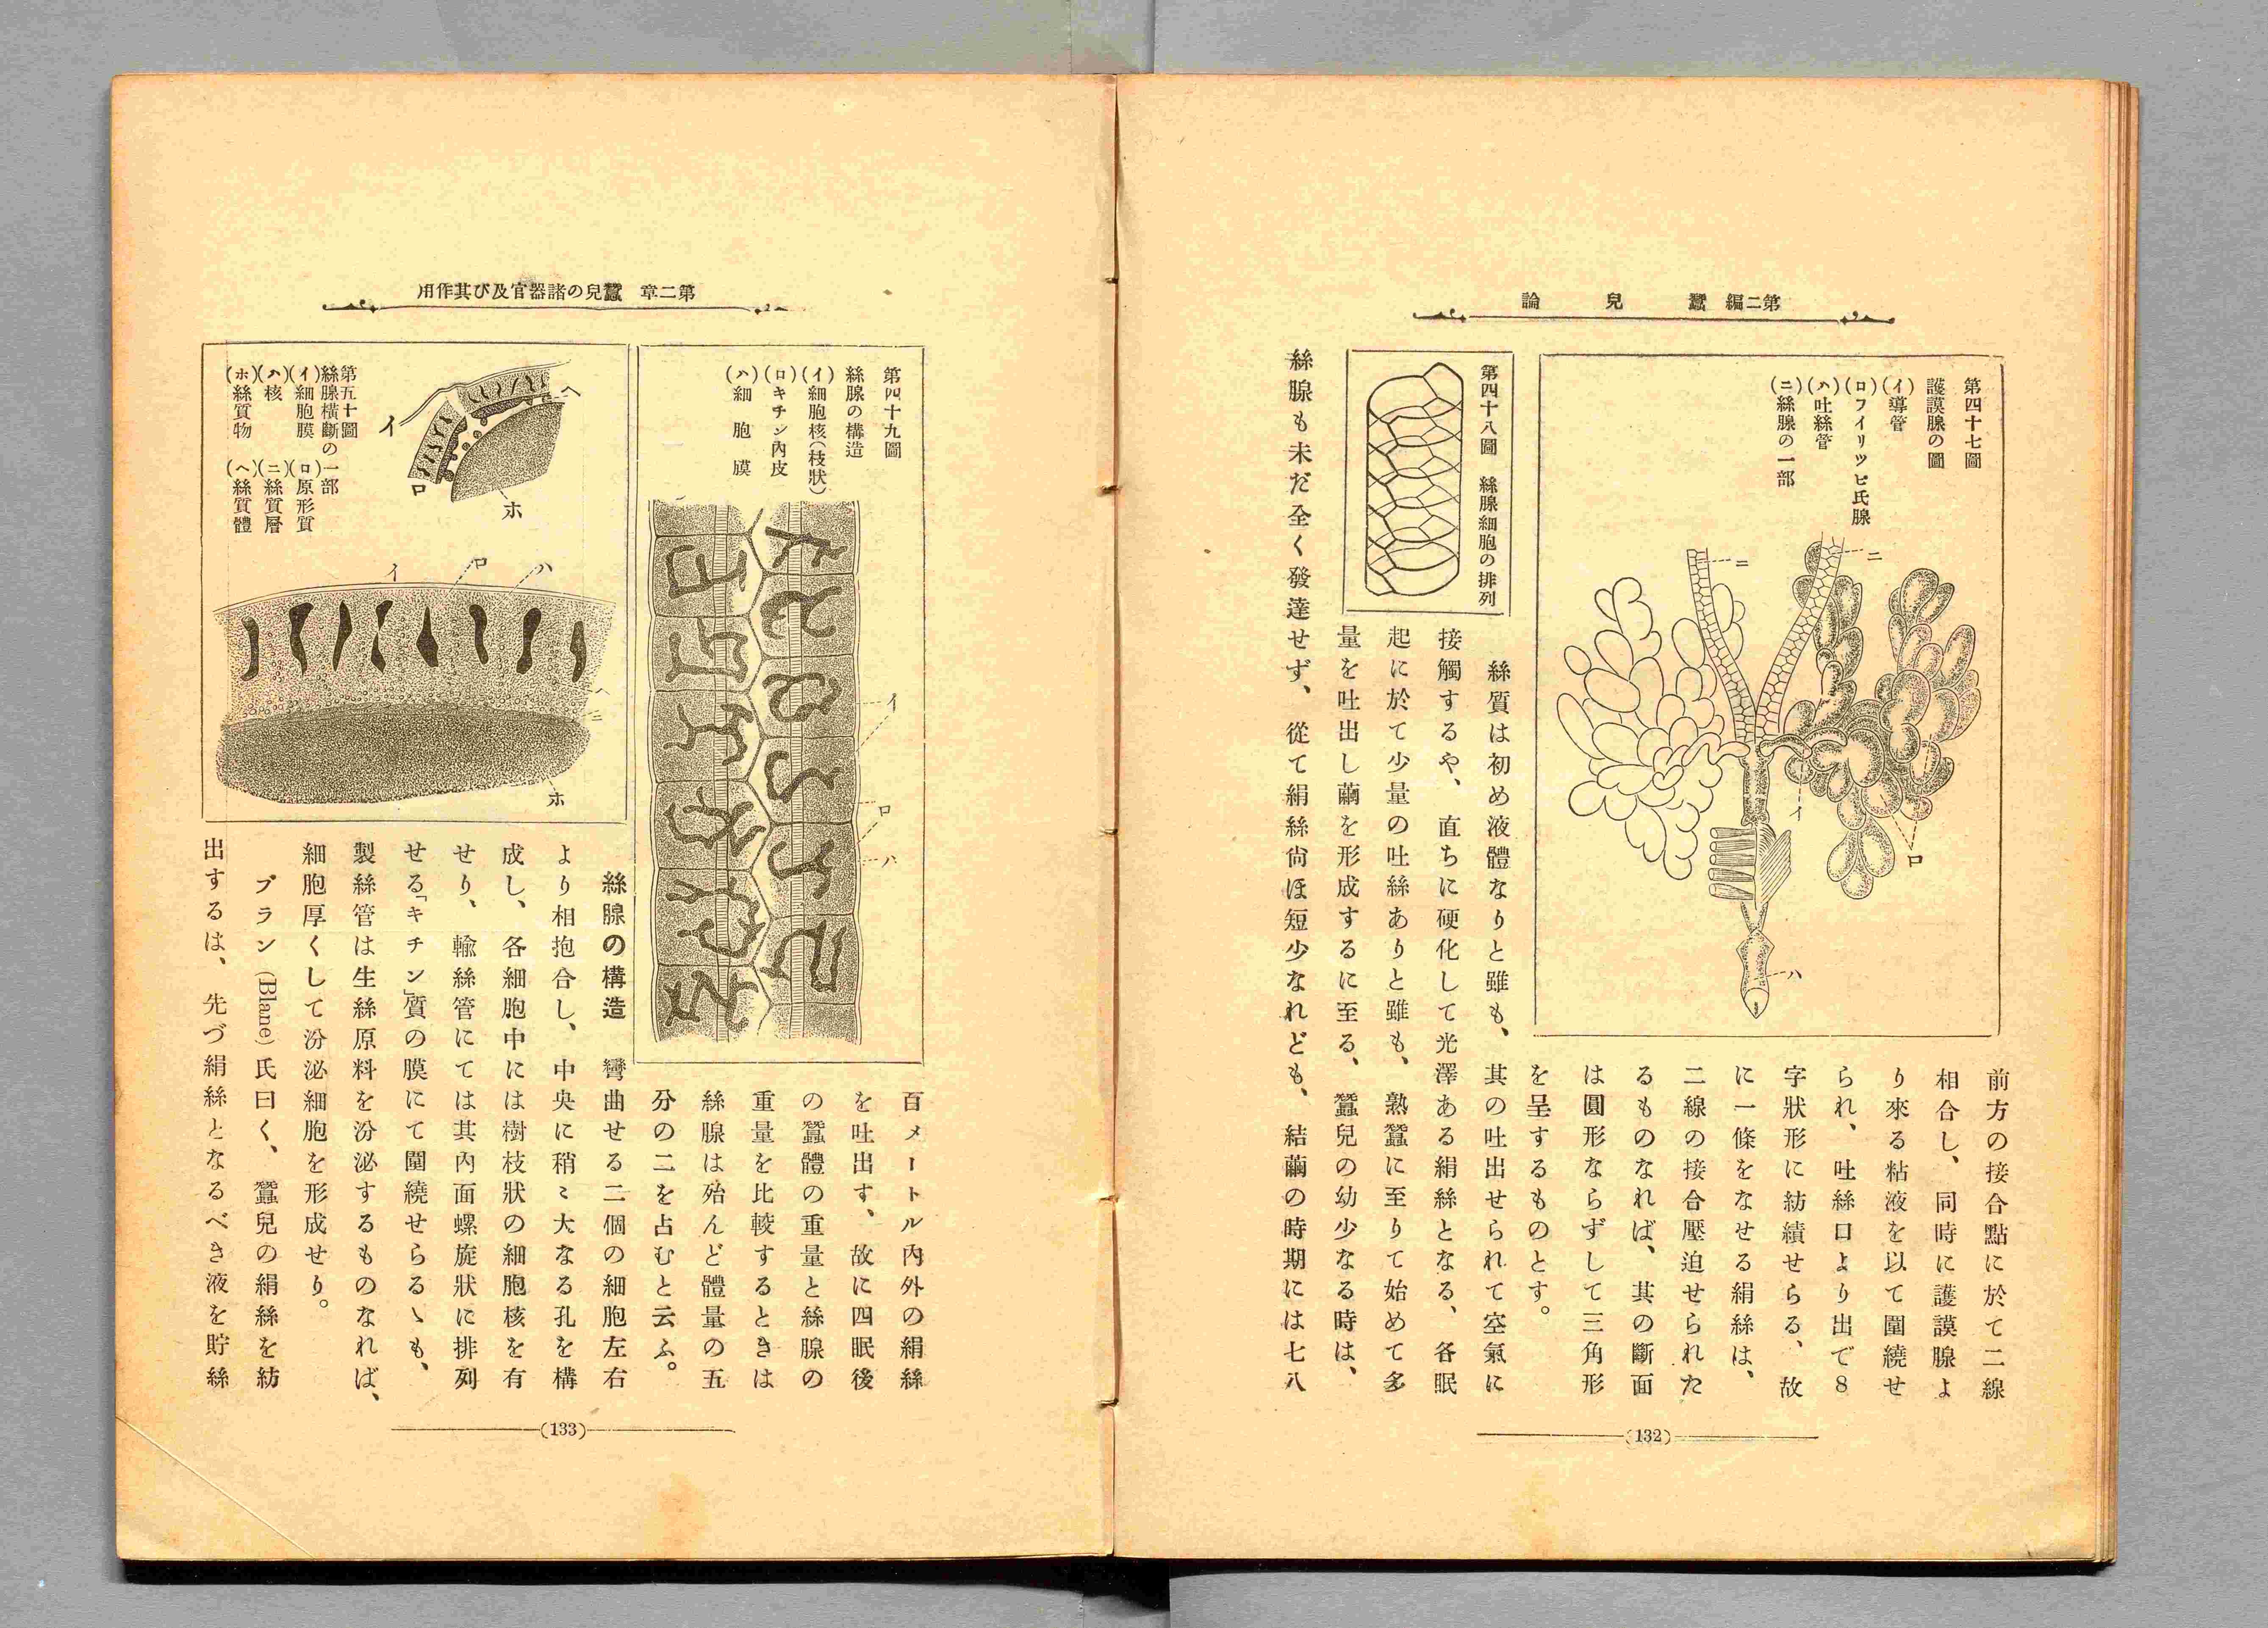 第二編　蠶兒論
第四十七圖
護謨腺の圖
(イ)導管
(ロ)フイリツピ氏腺
(ハ)吐絲管
(ニ)絲腺の一部
ニ
ニ
イ
ロ
ハ
前方の接合點に於て二線
相合し、同時に護謨腺よ
り來る粘液を以て圍繞せ
られ、吐絲口より出で8
字狀形に紡績せらる、故
に一條をなせる絹絲は、
二線の接合壓迫せられた
るものなれば、其の斷面
は圓形ならずして三角形
を呈するものとす。
第四十八圖　絲腺細胞の排列
絲質は初め液體なりと雖も、其の吐出せられて空氣に
接觸するや、直ちに硬化して光澤ある絹絲となる、各眠
起に於て少量の吐絲ありと雖も、熟蠶に至りて始めて多
量を吐出し繭を形成するに至る、蠶兒の幼少なる時は、
絲腺も未だ全く發達せず、從て絹絲尙ほ短少なれども、結繭の時期には七八
(132)
第二章　蠶兒の諸器官及び其作用
第四十九圖
絲腺の構造
(イ)細胞核(枝狀)
(ロ)キチン內皮
(ハ)細胞膜
イ
ロ
ハ
百メートル內外の絹絲
を吐出す、故に四眠後
の蠶體の重量と絲腺の
重量を比較するときは
絲腺は殆んど體量の五
分の二を占むと云ふ。
第五十圖
絲腺橫斷の一部
(イ)細胞膜　(ロ)原形質
(ハ)核　(ニ)絲質層
(ホ)絲質物　(ヘ)絲質體
ヘ
イ
ロ
ホ
イ
ロ
ハ
ヘ
ニ
ホ
絲腺の構造　彎曲せる二個の細胞左右
より相抱合し、中央に稍〻大なる孔を構
成し、各細胞中には樹枝狀の細胞核を有
せり、輸絲管にては其內面螺旋狀に排列
せる「キチン」質の膜にて圍繞せらるゝも、
製絲管は生絲原料を汾泌するものなれば、
細胞厚くして汾泌細胞を形成せり。
ブラン(Blane)氏曰く、蠶兒の絹絲を紡
出するは、先づ絹絲となるべき液を貯絲
(133)